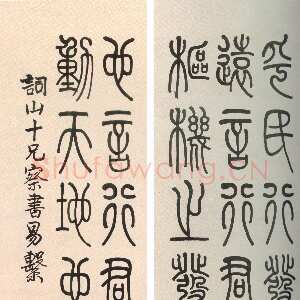 乎民行發
遠言行君
樞機之發
也言行君
動天地也
詞山十兄察書易繫
Shufawang.CN